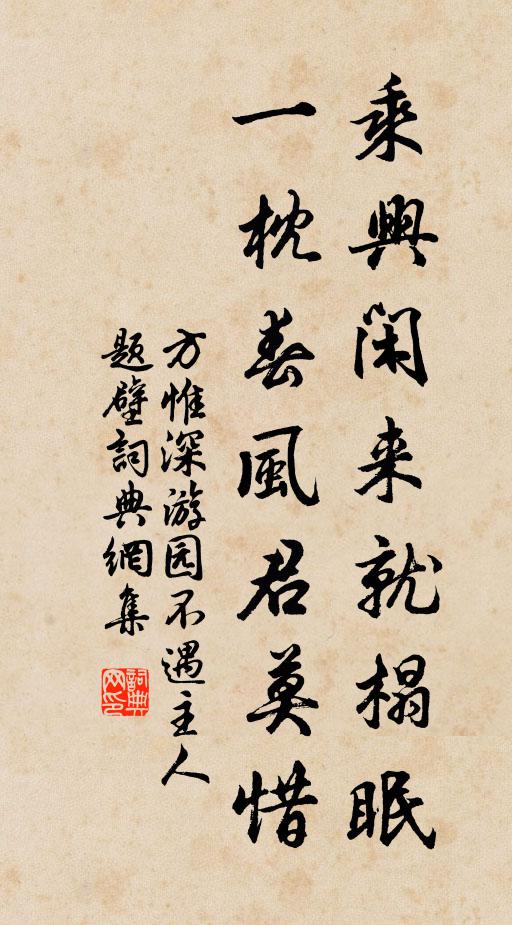 乘興閑来就榻眠
一枕春風君莫惜
方惟深游园不遇主人
題壁詞典網集
詞典网印